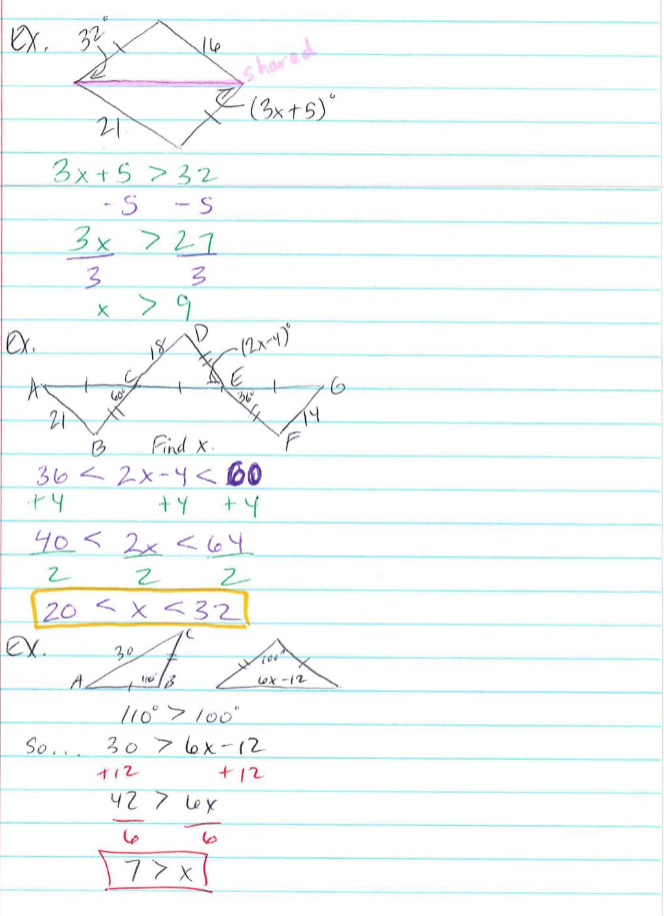 Ex. 32° 16
shared
21 (3x+5)°
3x+5 > 32
-5 -5
3x > 27
3 3
x > 9
Ex. 18 D (2x-4)°
A C E G
60° 36°
21 14
B F
Find x.
36 < 2x-4 < 60
+4 +4 +4
40 < 2x < 64
2 2 2
20 < x < 32
Ex. 30 C 100°
A 110° B 6x-12
110° > 100°
So... 30 > 6x-12
+12 +12
42 > 6x
6 6
7 > x